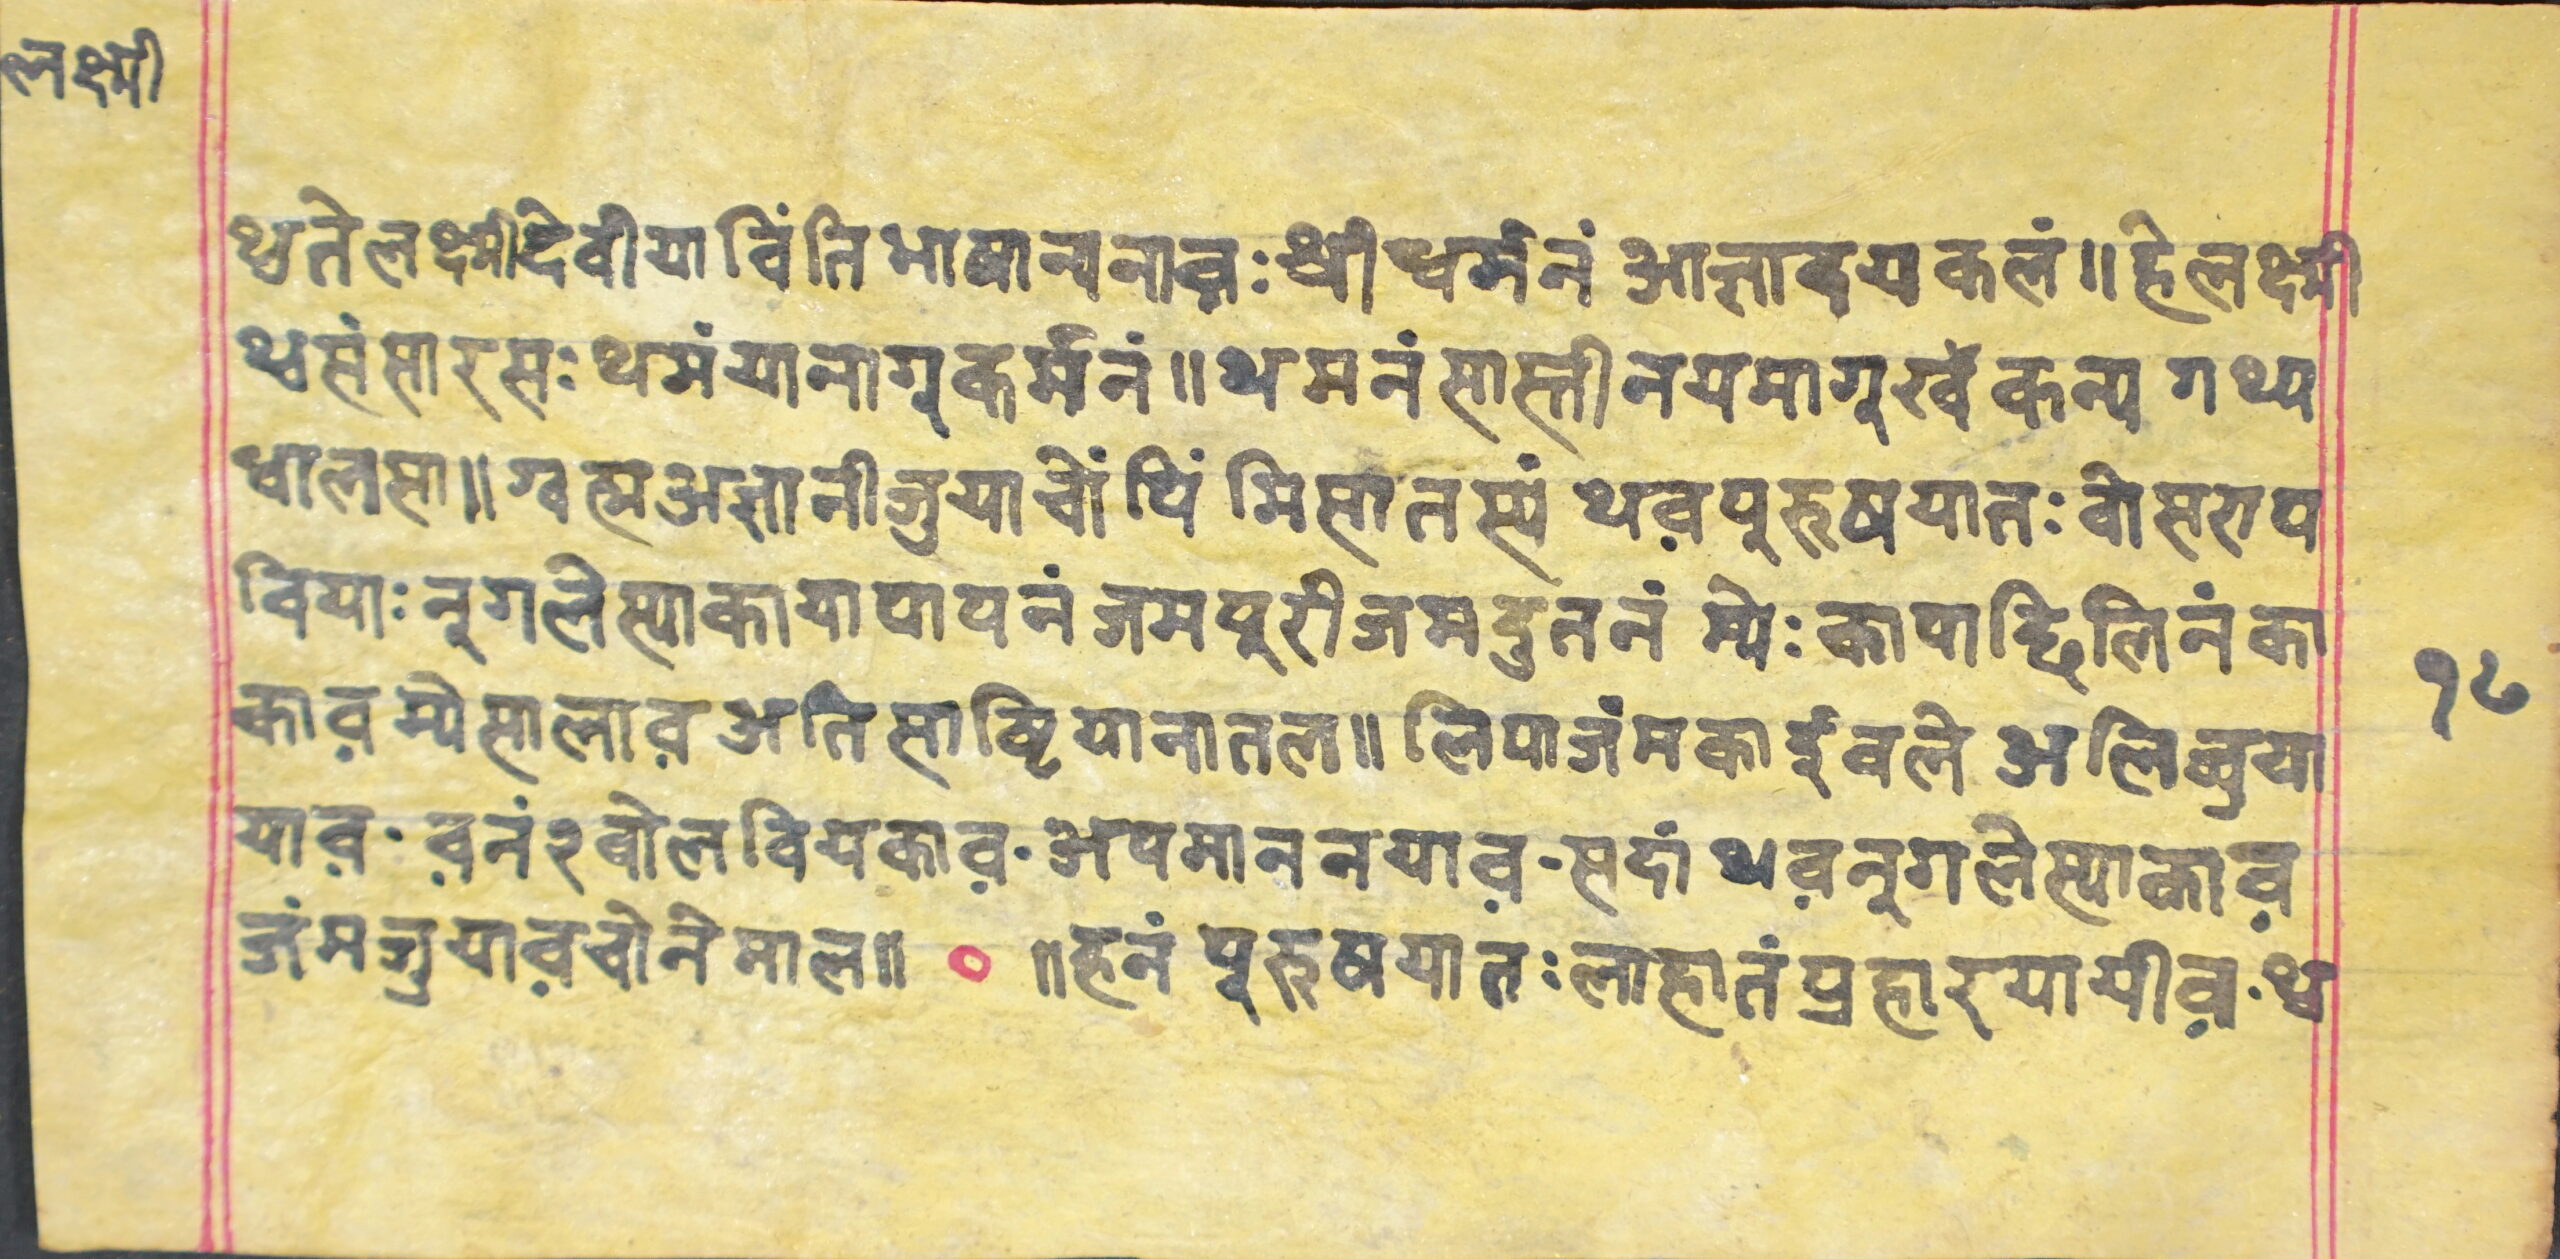 लक्ष्मी
थ्वते लक्ष्मीदेवीया विंति भाषा न्यनाव़ः श्रीधर्मनं आज्ञादयकलं॥ हे लक्ष्मी
थ्व संसारसः थमं याना गू कर्मनं॥ थमनं सास्ती नयमा गू खँ कन्य गथ्य
धालसा॥ ग्वह्म अज्ञानी जुया चोंपिं मिसातस्यं थव़ पुरूषयातः वो सराप
वियाः नुगले स्याकाया पापनं जमपुरी जमदुतनं म्येः कापा छिलिनं का
काव़ म्ये सालाव़ अति साष्टि यानातल॥ लिपा जंमकाईवले अलिख्वया
याव़· व़नं२ बोलवियकाव़· अपमान नयाव़· सदां थव़ नुगले स्याकाव़
जंम जुयाव़ चोने माल॥ ० ॥ हनं पुरूषयातः लाहातं प्रहार यायीव़· थ्व
१८